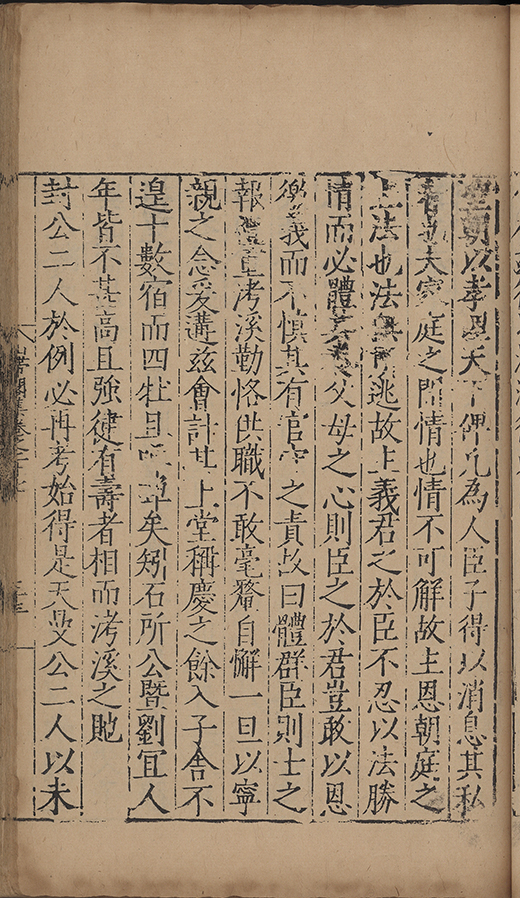 聖朝以孝理天下俾凡為人臣子得以消息其私
者也夫家庭之間情也情不可解故主恩朝庭之
上法也法無所逃故上義君之於臣不忍以法勝
情而必體其父母之心則臣之於君豈敢以恩
義而不慎其有官守之責故曰體群臣則士之
報禮重洘溪勤恪供職不敢毫釐自懈一旦以寧
親之念爰遘茲會計其上堂稱慶之餘入子舍不
遑十數宿而四牡且嘽嘽矣矧石所公暨劉宜人
年皆不甚高且強健有壽者相而洘溪之貤
封公二人於例必再考始得是天欲公二人以未
卷之